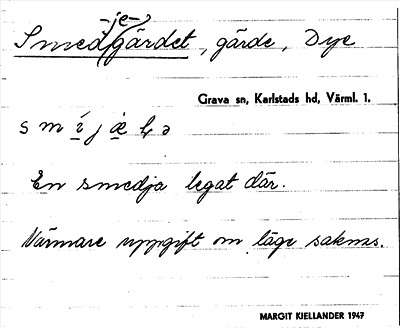 -je-
Smedgärdet, gärde, Dye
Grava sn, Karlstads hd, Värml. 1.
En smedja legat där.
Närmare uppgift om läge saknas.
MARGIT KIELLANDER 1947